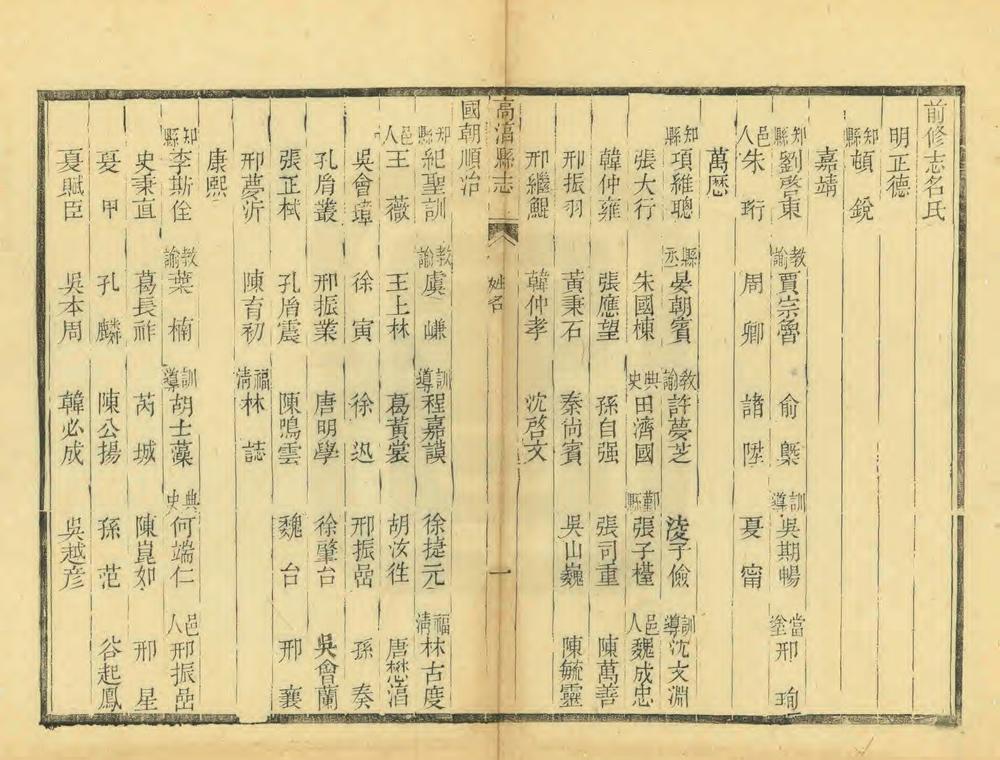 前修志名氏
明正德
知縣頓 銳
嘉靖
知縣劉啓東 教諭賈宗魯 俞槃 訓導吳期暢 當塗邢珣
邑人朱 珩 周 卿 諸 陞 夏 甯
萬歷
知縣項維聰 縣丞晏朝賓 教諭許夢芝 淩子儉 訓導沈文淵
張大行 朱國棟 典史田濟國 鄞縣張子櫃 邑人魏成忠
韓仲雍 張應望 孫自强 張司重 陳萬善
邢振羽 黃秉石 秦尙賓 吳山巍 陳毓靈
邢繼鯤 韓仲孝 沈啓文
高淳縣志 姓名 一
國朝順治
知縣紀聖訓 教諭虞 㻩 訓導程嘉謨 徐捷元 福淸林古度
邑人王 薇 王上林 葛黃裳 胡汝徃 唐懋湻
吳會璋 徐 寅 徐 迅 邢振嵒 孫 奏
孔胤叢 邢振業 唐明學 徐肇台 吳會蘭
張正栻 孔胤震 陳鳴雲 魏 台 邢 襄
邢夢沂 陳育初 福淸林 誌
康熙
知縣李斯佺 教諭葉 楠 訓導胡士藻 典史何端仁 邑人邢振嵒
史秉直 葛長祚 芮 城 陳崑如 邢 星
夏 甲 孔 麟 陳公揚 孫 范 谷起鳳
夏賦臣 吳本周 韓必成 吳越彥